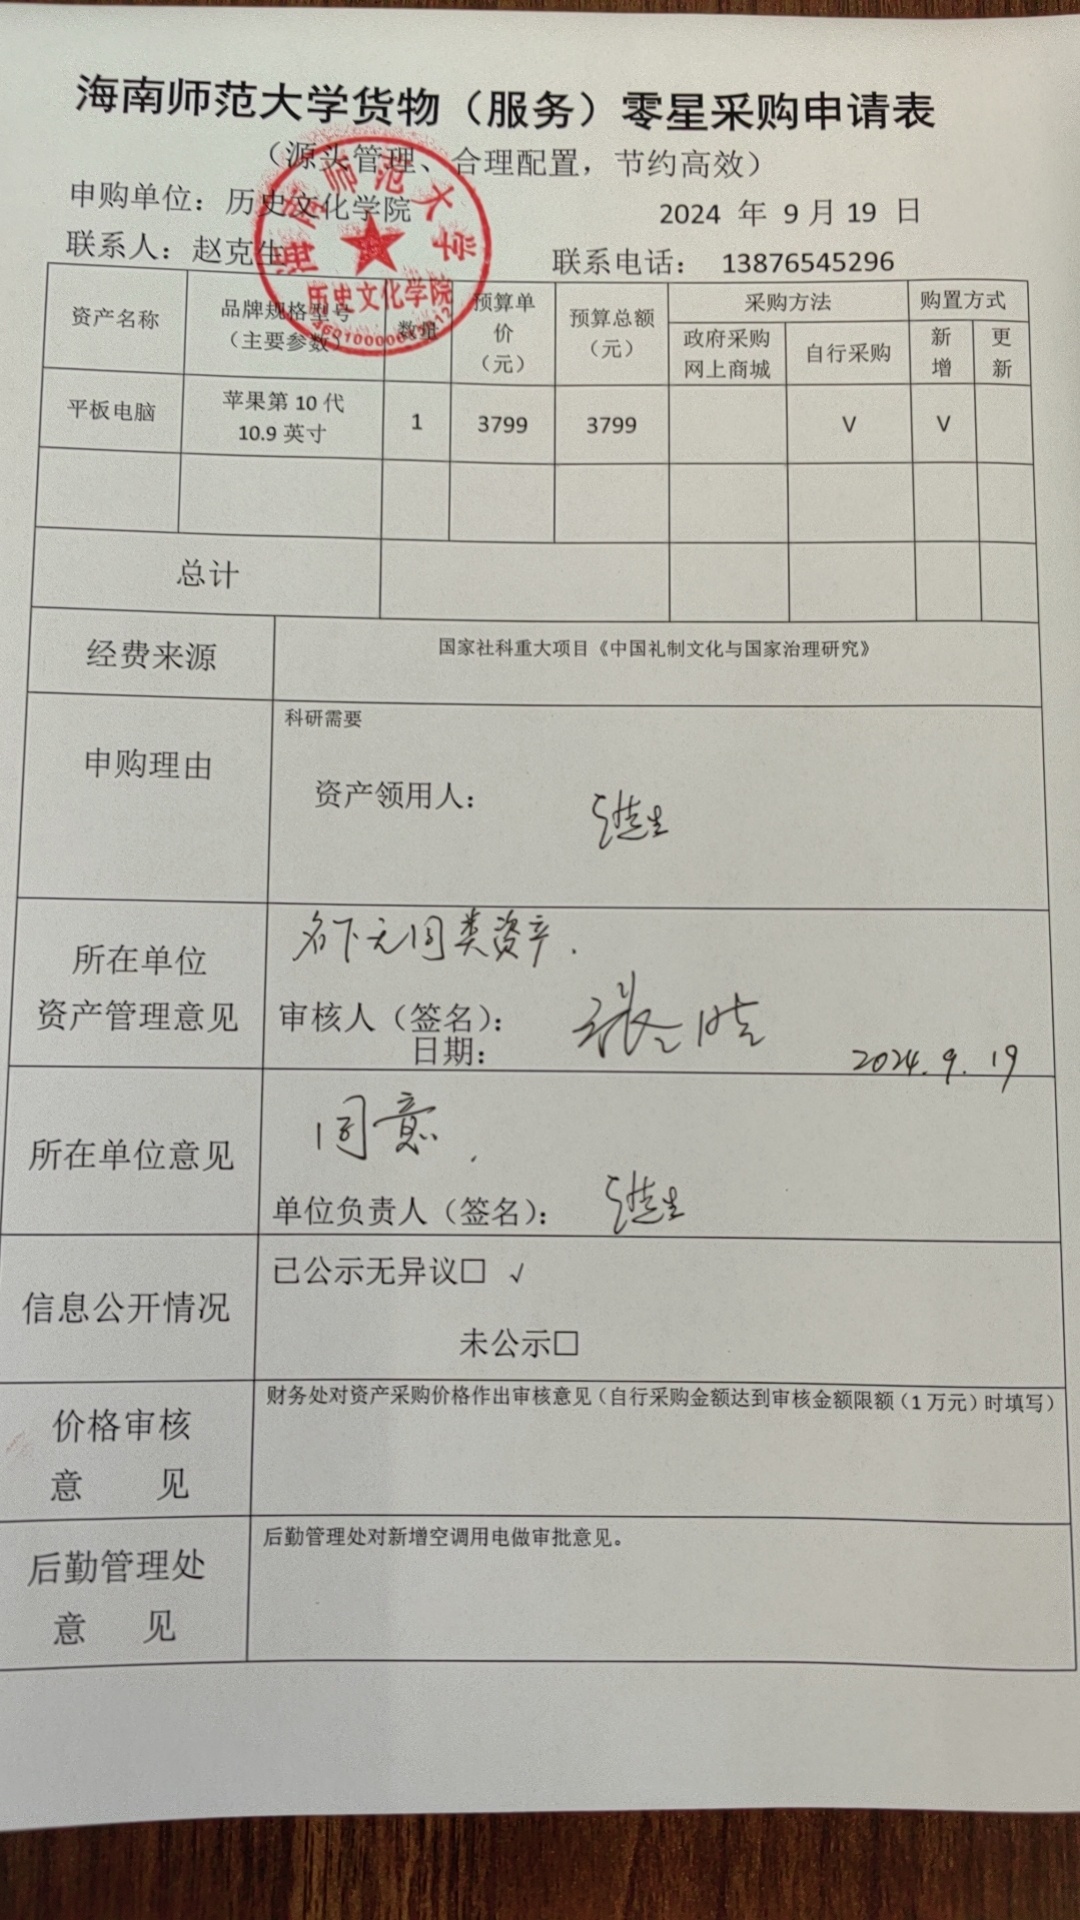 海南师范大学货物（服务）零星采购申请表
（源头管理、合理配置，节约高效）
申购单位：历史文化学院 2024 年 9 月 19 日
联系人：赵克生 联系电话： 13876545296
海南师范大学
历史文化学院
资产名称 品牌规格型号（主要参数） 数量 预算单价（元） 预算总额（元） 采购方法 购置方式
政府采购网上商城 自行采购 新增 更新
平板电脑 苹果第 10 代 10.9 英寸 1 3799 3799 V V
总计
经费来源 国家社科重大项目《中国礼制文化与国家治理研究》
申购理由 科研需要
资产领用人：
所在单位 名下无同类资产.
资产管理意见 审核人（签名）：
日期： 2024.9.19
所在单位意见 同意.
单位负责人（签名）：
信息公开情况 已公示无异议□ √
未公示□
价格审核 财务处对资产采购价格作出审核意见（自行采购金额达到审核金额限额（1 万元）时填写）
意 见
后勤管理处 后勤管理处对新增空调用电做审批意见。
意 见